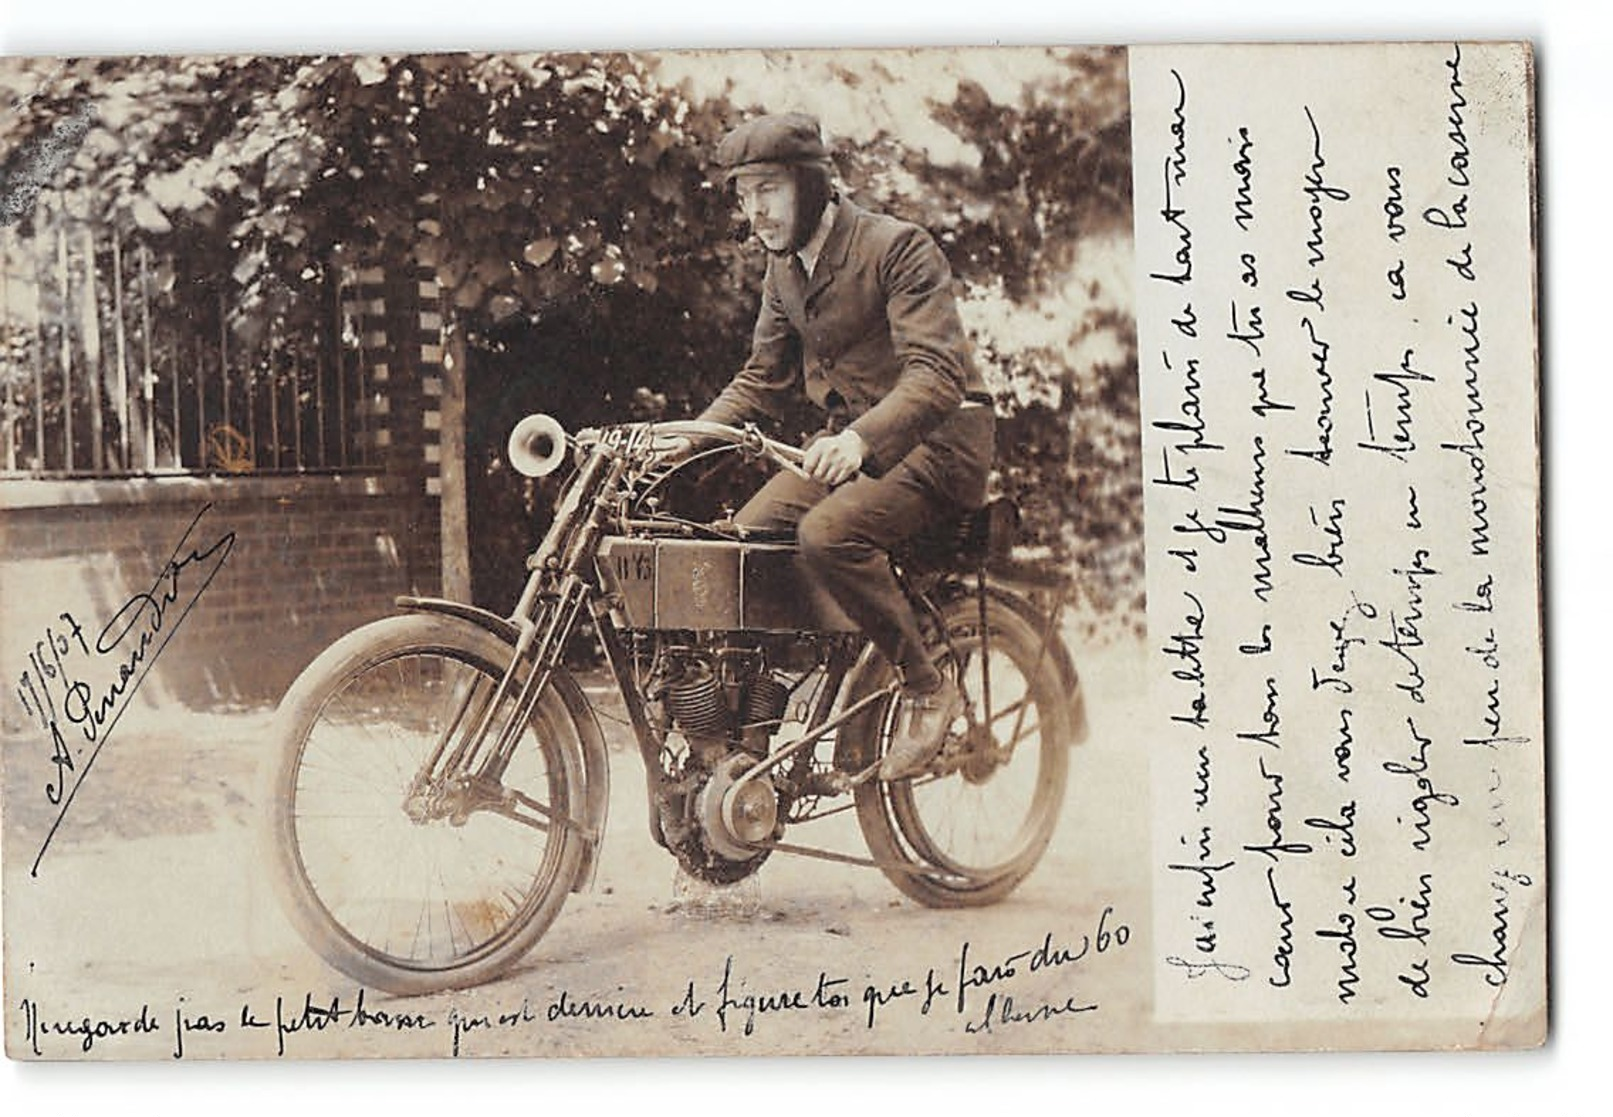 17/6/07
19-14
Ne regarde pas le petit banc qui est derrière et figure toi que je fais du 60
à l'heure
J'ai enfin eu ta lettre et je te plains de tout mon
cœur pour tous les malheurs que tu as mais
cela vous bien trouver le moyen
de bien rigoler de temps en temps. ca vous
un peu de la monotonie de la caserne